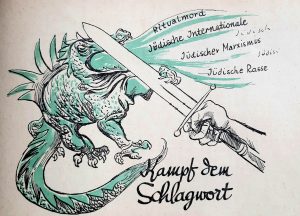 Ritualmord
Jüdische Internationale
Jüdischer Marxismus
Jüdische Rasse
Kampf dem
Schlagwort